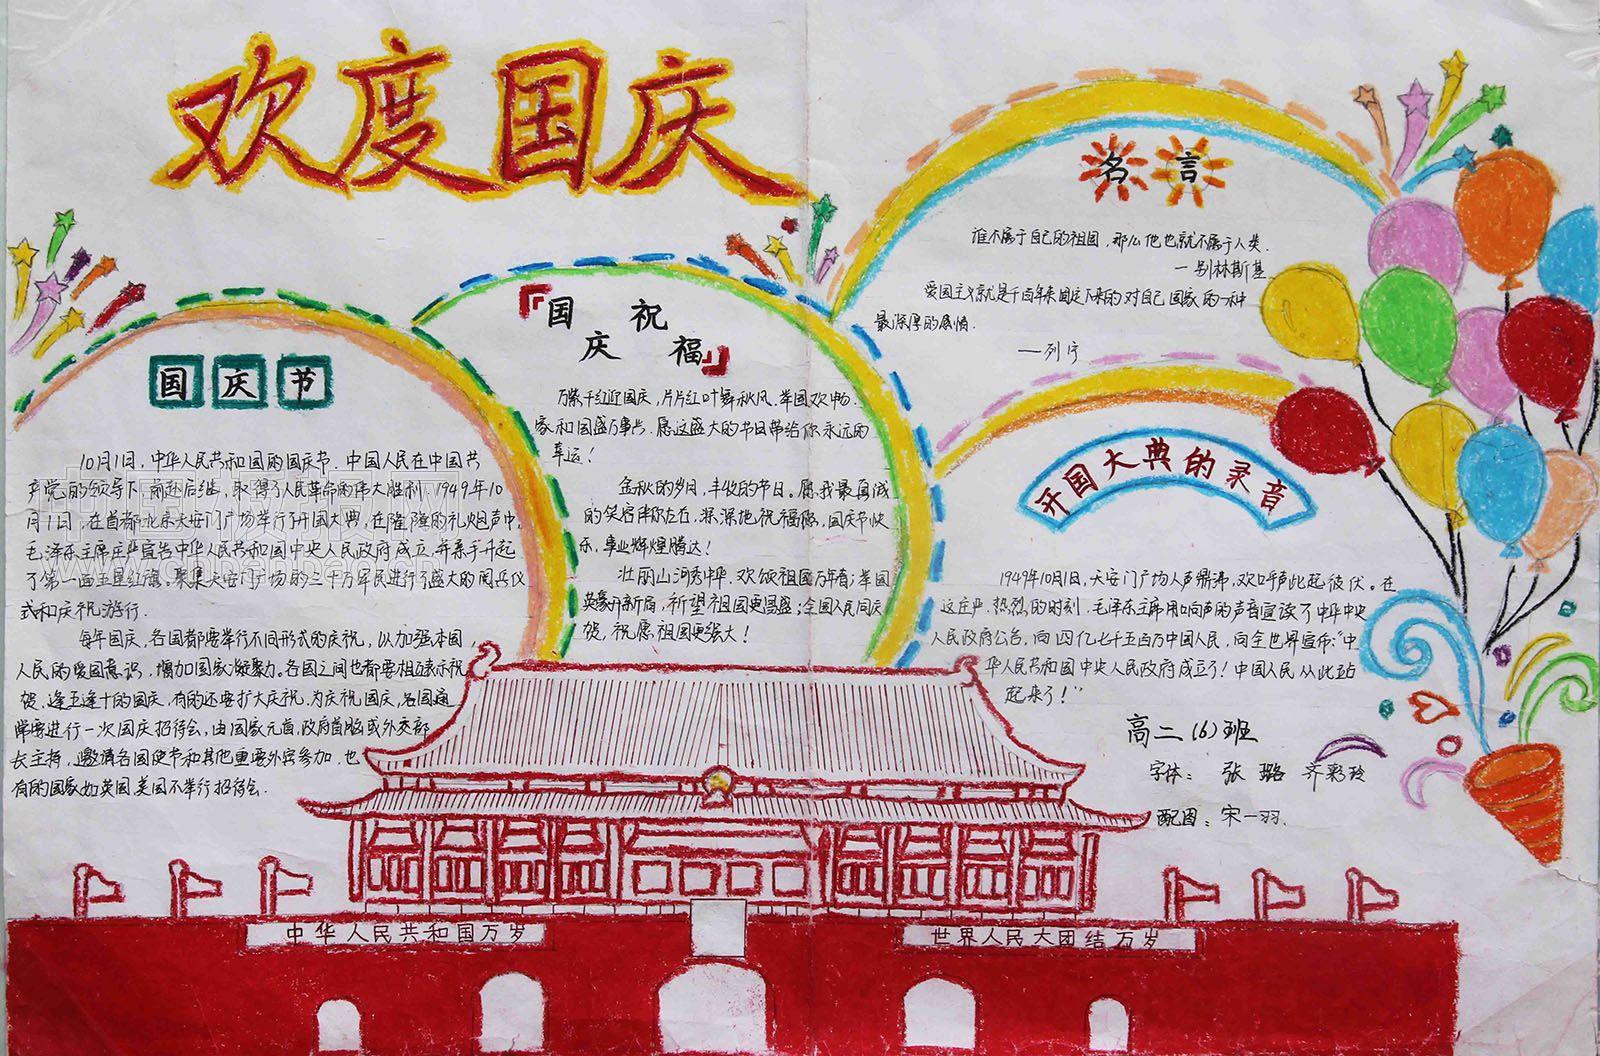 欢度国庆
国庆节
10月1日，中华人民共和国的国庆节．中国人民在中国共
产党的领导下，前赴后继，取得了人民革命的伟大胜利．1949年10
月1日，在首都北京天安门广场举行了开国大典，在隆隆的礼炮声中，
毛泽东主席庄严宣告中华人民共和国中央人民政府成立，并亲手升起
了第一面五星红旗。聚集天安门广场的三十万军民进行了盛大的阅兵仪
式和庆祝游行．
每年国庆，各国都要举行不同形式的庆祝，以加强本国
人民的爱国意识，增加国家凝聚力。各国之间也都要相互表示祝
贺，逢五逢十的国庆，有的还要扩大庆祝．为庆祝国庆，各国通
常要进行一次国庆招待会，由国家元首，政府首脑或外交部
长主持，邀请各国使节和其他重要外宾参加．也
有的国家如英国，美国不举行招待会．
『国庆祝福』
万紫千红迎国庆，片片红叶舞秋风，举国欢畅．
家和国盛万事兴．愿这盛大的节日带给你永远的
幸运！
金秋的岁月，丰收的节日。愿我最真诚
的笑容伴你左右，深深地祝福您，国庆节快
乐，事业辉煌腾达！
壮丽山河秀中华，欢颂祖国万年春；举国
英豪开新局，祈望祖国更昌盛；全国人民同庆
贺，祝愿祖国更强大！
名言
谁不属于自己的祖国，那么他也就不属于人类．
—别林斯基
爱国主义就是千百年来固定下来的对自己国家的一种
最深厚的感情．
—列宁
开国大典的录音
1949年10月1日，天安门广场人声鼎沸，欢呼声此起彼伏。在
这庄严．热烈的时刻，毛泽东主席用响声的声音宣读了中华中央
人民政府公告，向四亿七千五百万中国人民，向全世界宣布：“中
华人民共和国中央人民政府成立了！中国人民从此站
起来了！”
高二（6）班
字体：张璐 齐彩玲
配图：宋一羽．
中华人民共和国万岁
世界人民大团结万岁